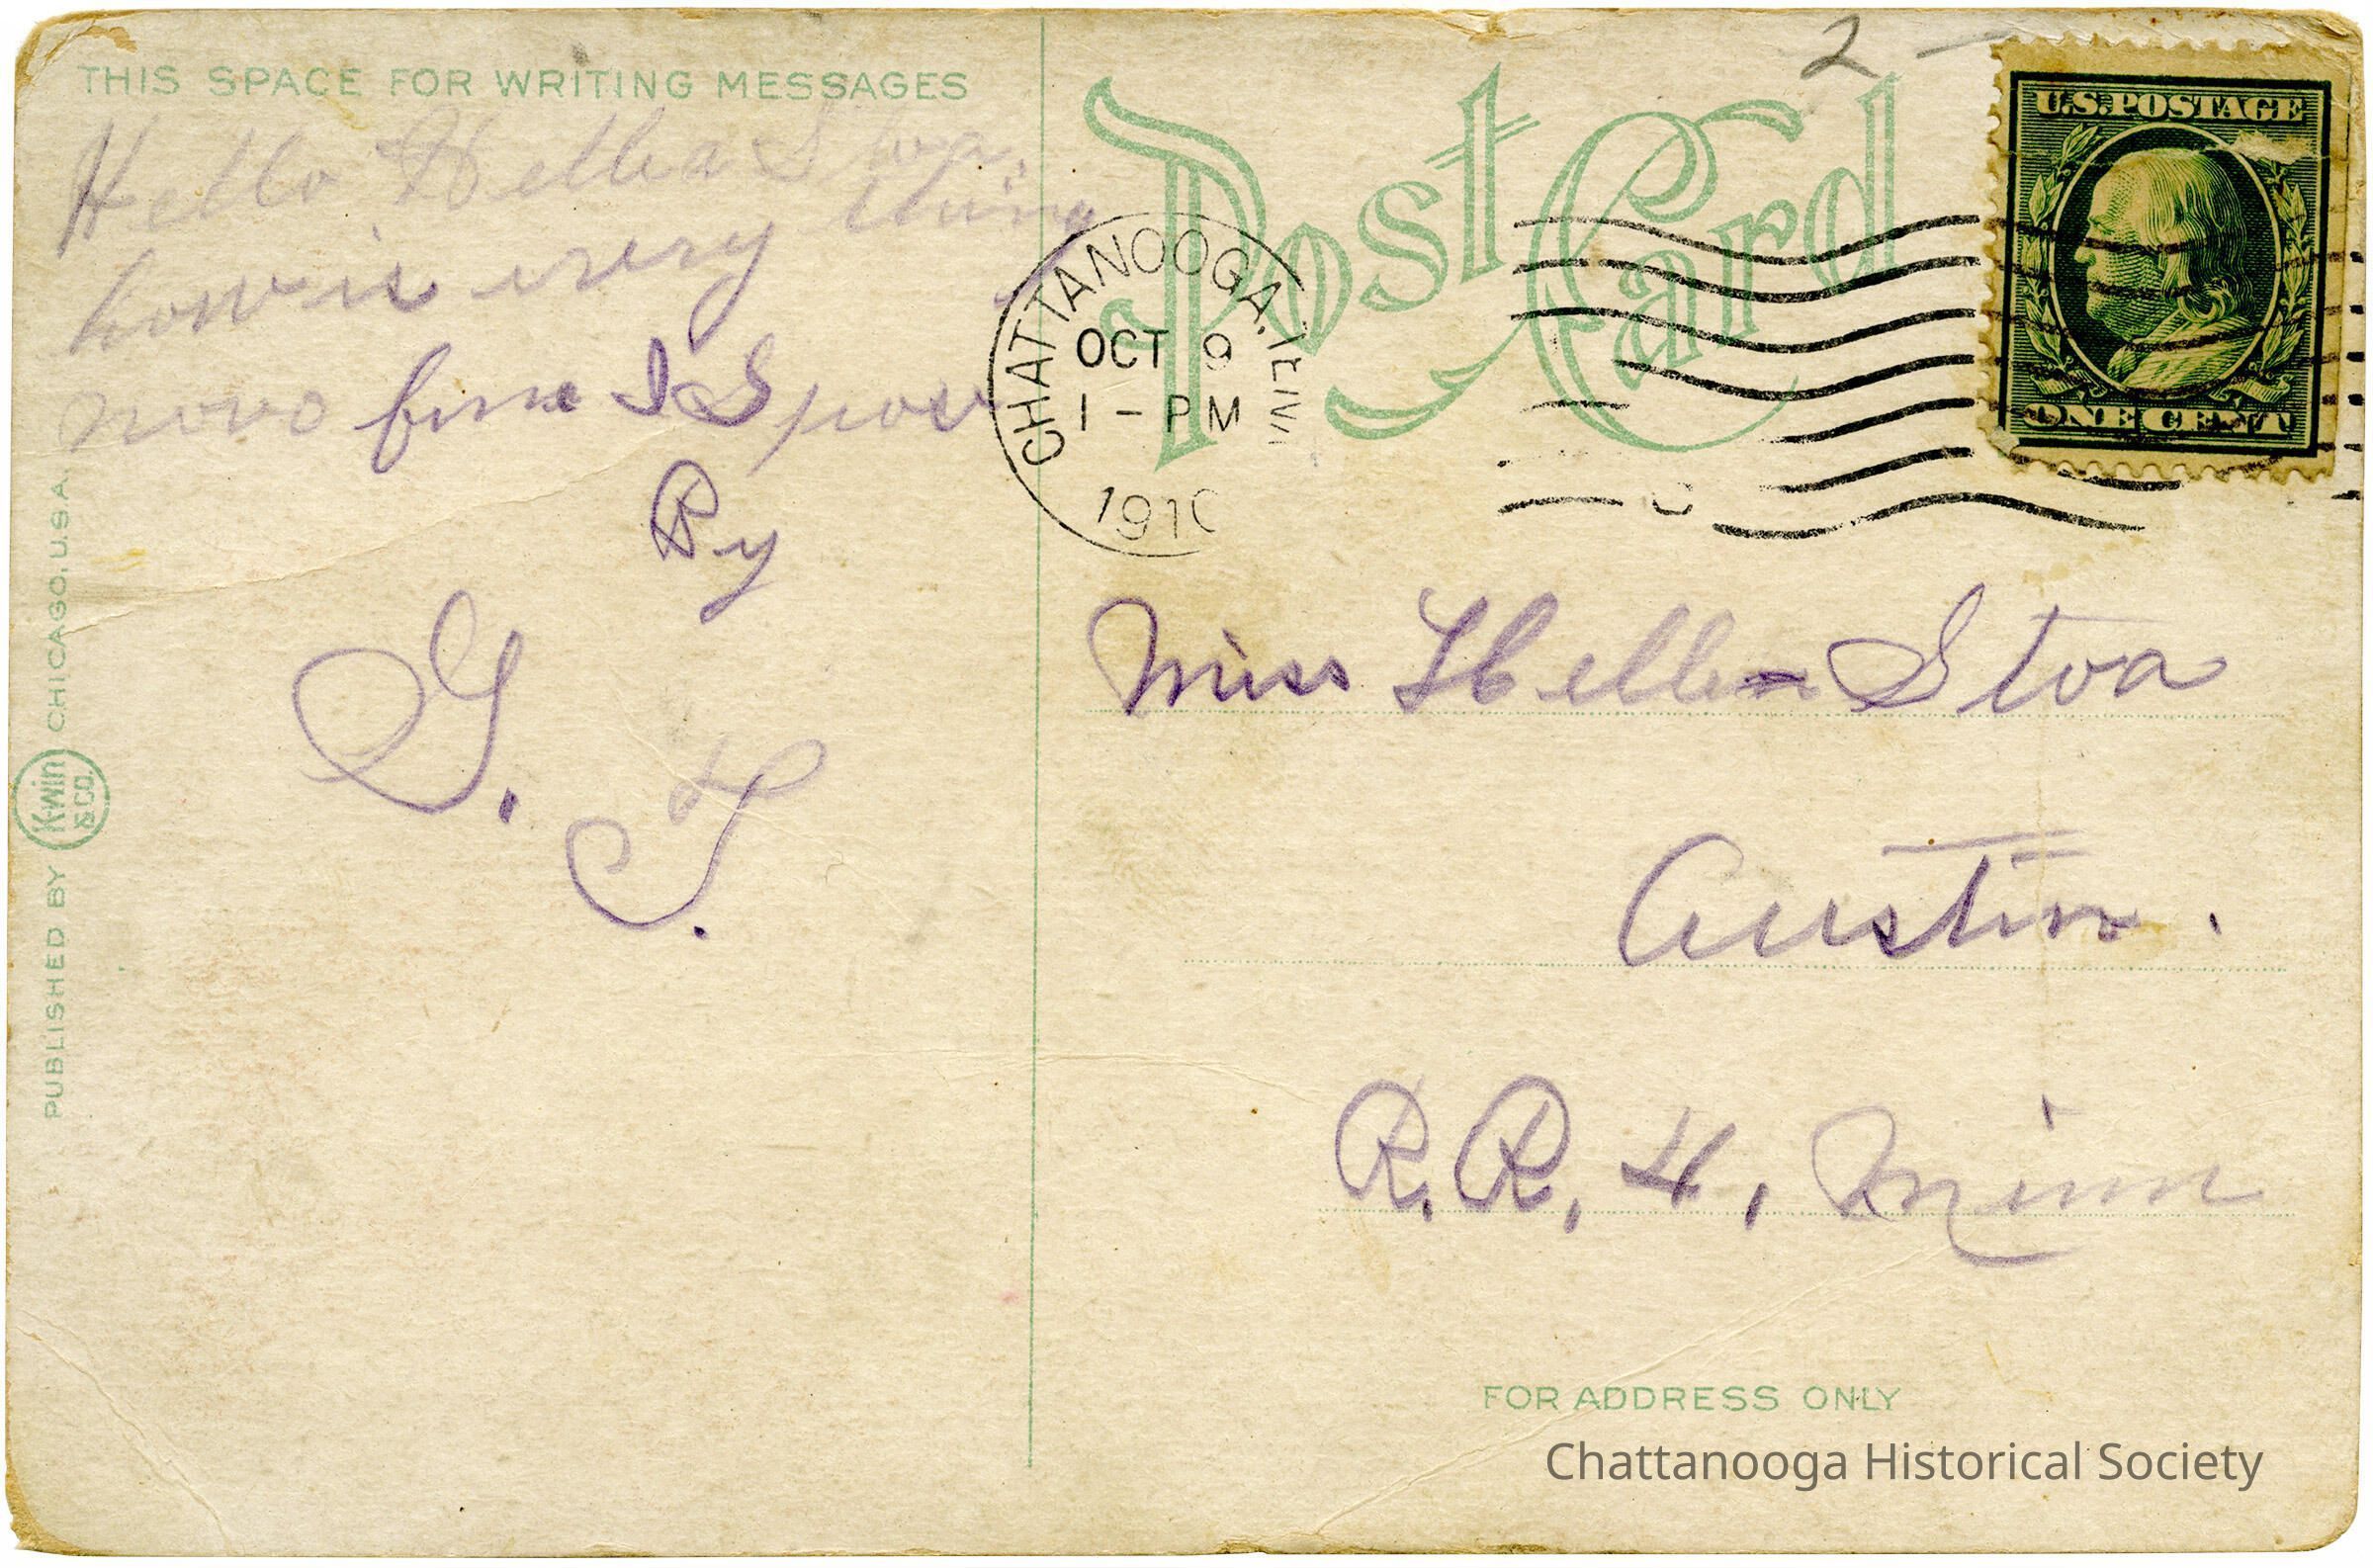 THIS SPACE FOR WRITING MESSAGES
Hello Hellen Stva.
how is every thing
novo fine I Spose
By
G. T.
PUBLISHED BY K-WIN & CO. CHICAGO, U.S.A.
2 —
Post Card
U.S. POSTAGE
ONE CENT
CHATTANOOGA, TENN
OCT 9
1 - PM
1910
Miss Hellen Stva
Austin.
R.R, 4, Minn
FOR ADDRESS ONLY
Chattanooga Historical Society